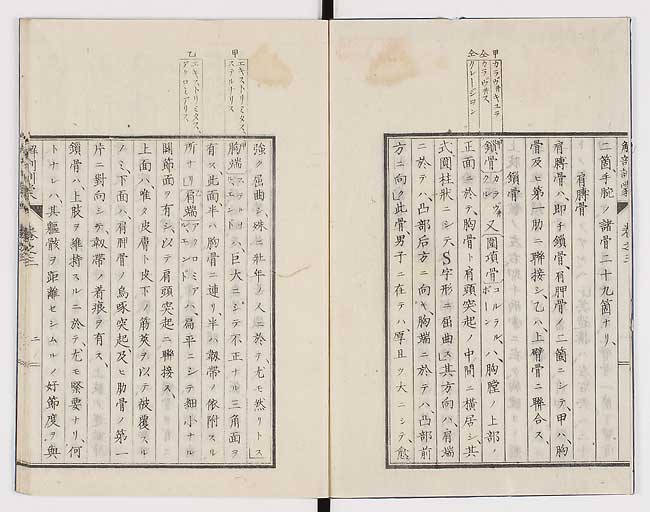 甲 カラヴ井キュラ
仝 カラヴ井ス
仝 クレージヨン
解剖訓蒙 巻之三
二箇手腕ノ諸骨二十九箇ナリ、
肩膊骨
肩膊骨ハ、即チ鎖骨、肩胛骨ノ二箇ニシテ、甲ハ、胸
骨及ヒ第一肋ニ聯接シ、乙ハ上臂骨ニ聯合ス、
鎖骨
鎖骨 又關項骨 コルラルボーン ハ、胸膛ノ上部ノ
正面ニ於テ、胸骨ト肩頭突起ノ中間ニ横居シ、其
式圓柱状ニシテ、S字形ニ屈曲シ其方向ハ、肩端
ニ於テハ、凸部后方ニ向キ、胸端ニ於テハ、凸部前
方ニ向ク此骨男子ニ在テハ、厚且ツ大ニシテ、愈
甲 エキストリミタス、ステルナリス
乙 エキストリミタス、アクロミアリス
強ク屈曲シ、殊ニ壮年ノ人ニ於テ、尤モ然リトス
胸端 ハ、巨大ニシテ不正ナル三角面ヲ
有ス、此面半ハ胸骨ニ連リ、半ハ靱帯ノ依附スル
所ナリ肩端 ハ、扁平ニシテ細小ナル
關節面ヲ有シ、以テ肩頭突起ニ聯接ス、
上面ハ唯タ皮膚ト皮下ノ筋莢ヲ以テ被覆スル
ノミ、下面ハ、肩胛骨ノ烏喙突起、及ヒ肋骨ノ第一
片ニ對向シテ、靱帯ノ着痕ヲ有ス、
鎖骨ハ上肢ヲ維持スルニ於テ、尤モ緊要ナリ、何
トナレハ、其軀骸ヲ距離セシムルノ好節度ヲ與
解剖訓蒙 巻之三 二